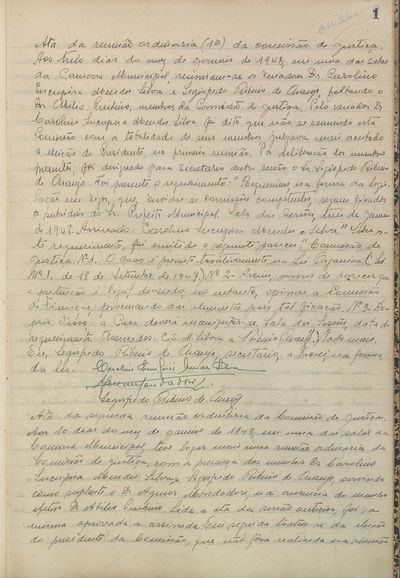 1
Ata da reunião ordinária (1ª) da comissão de justiça.
Aos três dias do mez de janeiro de 1948, em uma das salas
da Camara Municipal, reuniram-se os Vereadores Dr Carolino
Sucupira Mendes Silva e Segisfredo Ribeiro de Araujo, faltando o
Dr Abilio Pinheiro, membros da Comissão de justiça. Pelo vereador Dr
Carolino Sucupira Mendes Silva foi dito que não se reunindo esta
Comissão com a totalidade de seus membros julgava mais acertado
a eleição do Presidente, na proxima reunião. Por deliberação dos membros
presentes foi designado para Secretario desta sessão o Sr Segisfredo Ribeiro
de Araujo. Foi presente o requerimento: "Requeremos na forma da legis-
lação em vigor, que, ouvidas as comissões competentes, sejam fixados
o subsidio do Sr. Prefeito Municipal. Sala das Sessões, tres de janeiro
de 1948. Assinado: Carolino Sucupira Mendes e Silva" Sobre es-
te requerimento, foi emitido o seguinte parecer: "Comissão de
justiça. Nº1. O caso é previsto na Lei Organica (Lei
Nº 1, de 18 de Setembro de 1947) Nº 2- Assim, somos de parecer que
a pretenção é legal devendo, no entanto, opinar a Comissão
de Finanças, procurando dar elementos para tal fixação. Nº 3 De-
pois disso, a Casa deverá manifestar-se. Sala das Sessões, data do
requerimento. Assinados: C. S. M. Silva e S. Ribeiro Araujo". Nada mais.
Eu, Segisfredo Ribeiro de Araujo, secretario, a lavrei na forma
da lei.
Segisfredo Ribeiro de Araujo
Ata da segunda reunião ordinária da Comissão de justiça.
Aos 10 dias do mez de janeiro de 1948, em uma das salas da
Camara Municipal, teve logar mais uma reunião ordinária da
Comissão de justiça, com a presença dos membros Dr Carolino
Sucupira Mendes Silva e Segisfredo Ribeiro de Araujo, servindo
como suplente o Dr Agenor Mondadori, na ausencia do membro
efetivo Dr Abilio Pinheiro. Lida a ata da sessão anterior, foi a
mesma aprovada e assinada. Em seguida tratou-se da eleição
do presidente da Comissão, que não fôra realizada na reunião